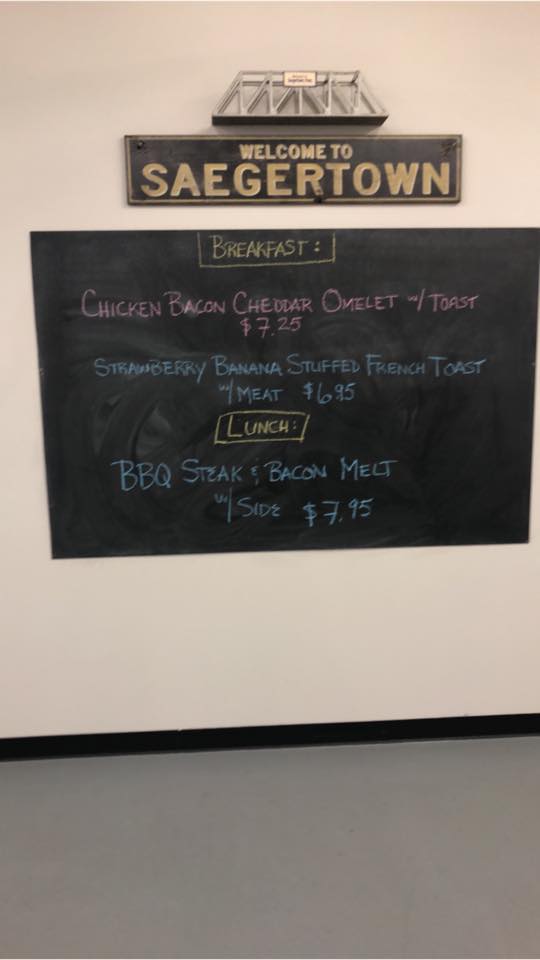 WELCOME TO
SAEGERTOWN
BREAKFAST:
CHICKEN BACON CHEDDAR OMELET W/ TOAST
$7.25
STRAWBERRY BANANA STUFFED FRENCH TOAST
W/ MEAT $6.95
LUNCH:
BBQ STEAK & BACON MELT
W/ SIDE $7.95